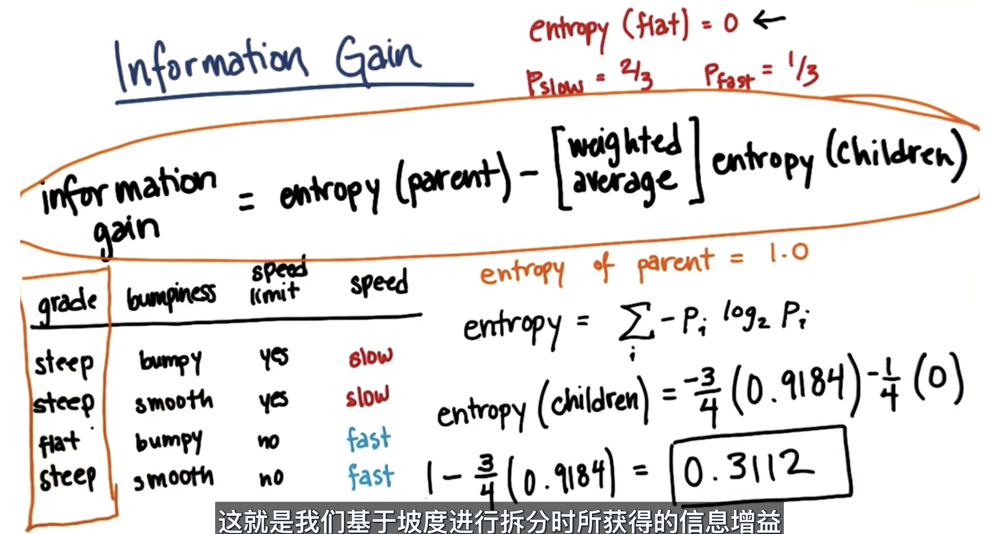 Information Gain
entropy (flat) = 0 ←
Pslow = 2/3 Pfast = 1/3
information gain = entropy (parent) - [weighted average] entropy (children)
entropy of parent = 1.0
grade bumpiness speed limit speed
steep bumpy yes slow
steep smooth yes slow
flat bumpy no fast
steep smooth no fast
entropy = ∑i -Pi log2 Pi
entropy (children) = -3/4 (0.9184) -1/4 (0)
1 - 3/4 (0.9184) = 0.3112
这就是我们基于坡度进行拆分时所获得的信息增益